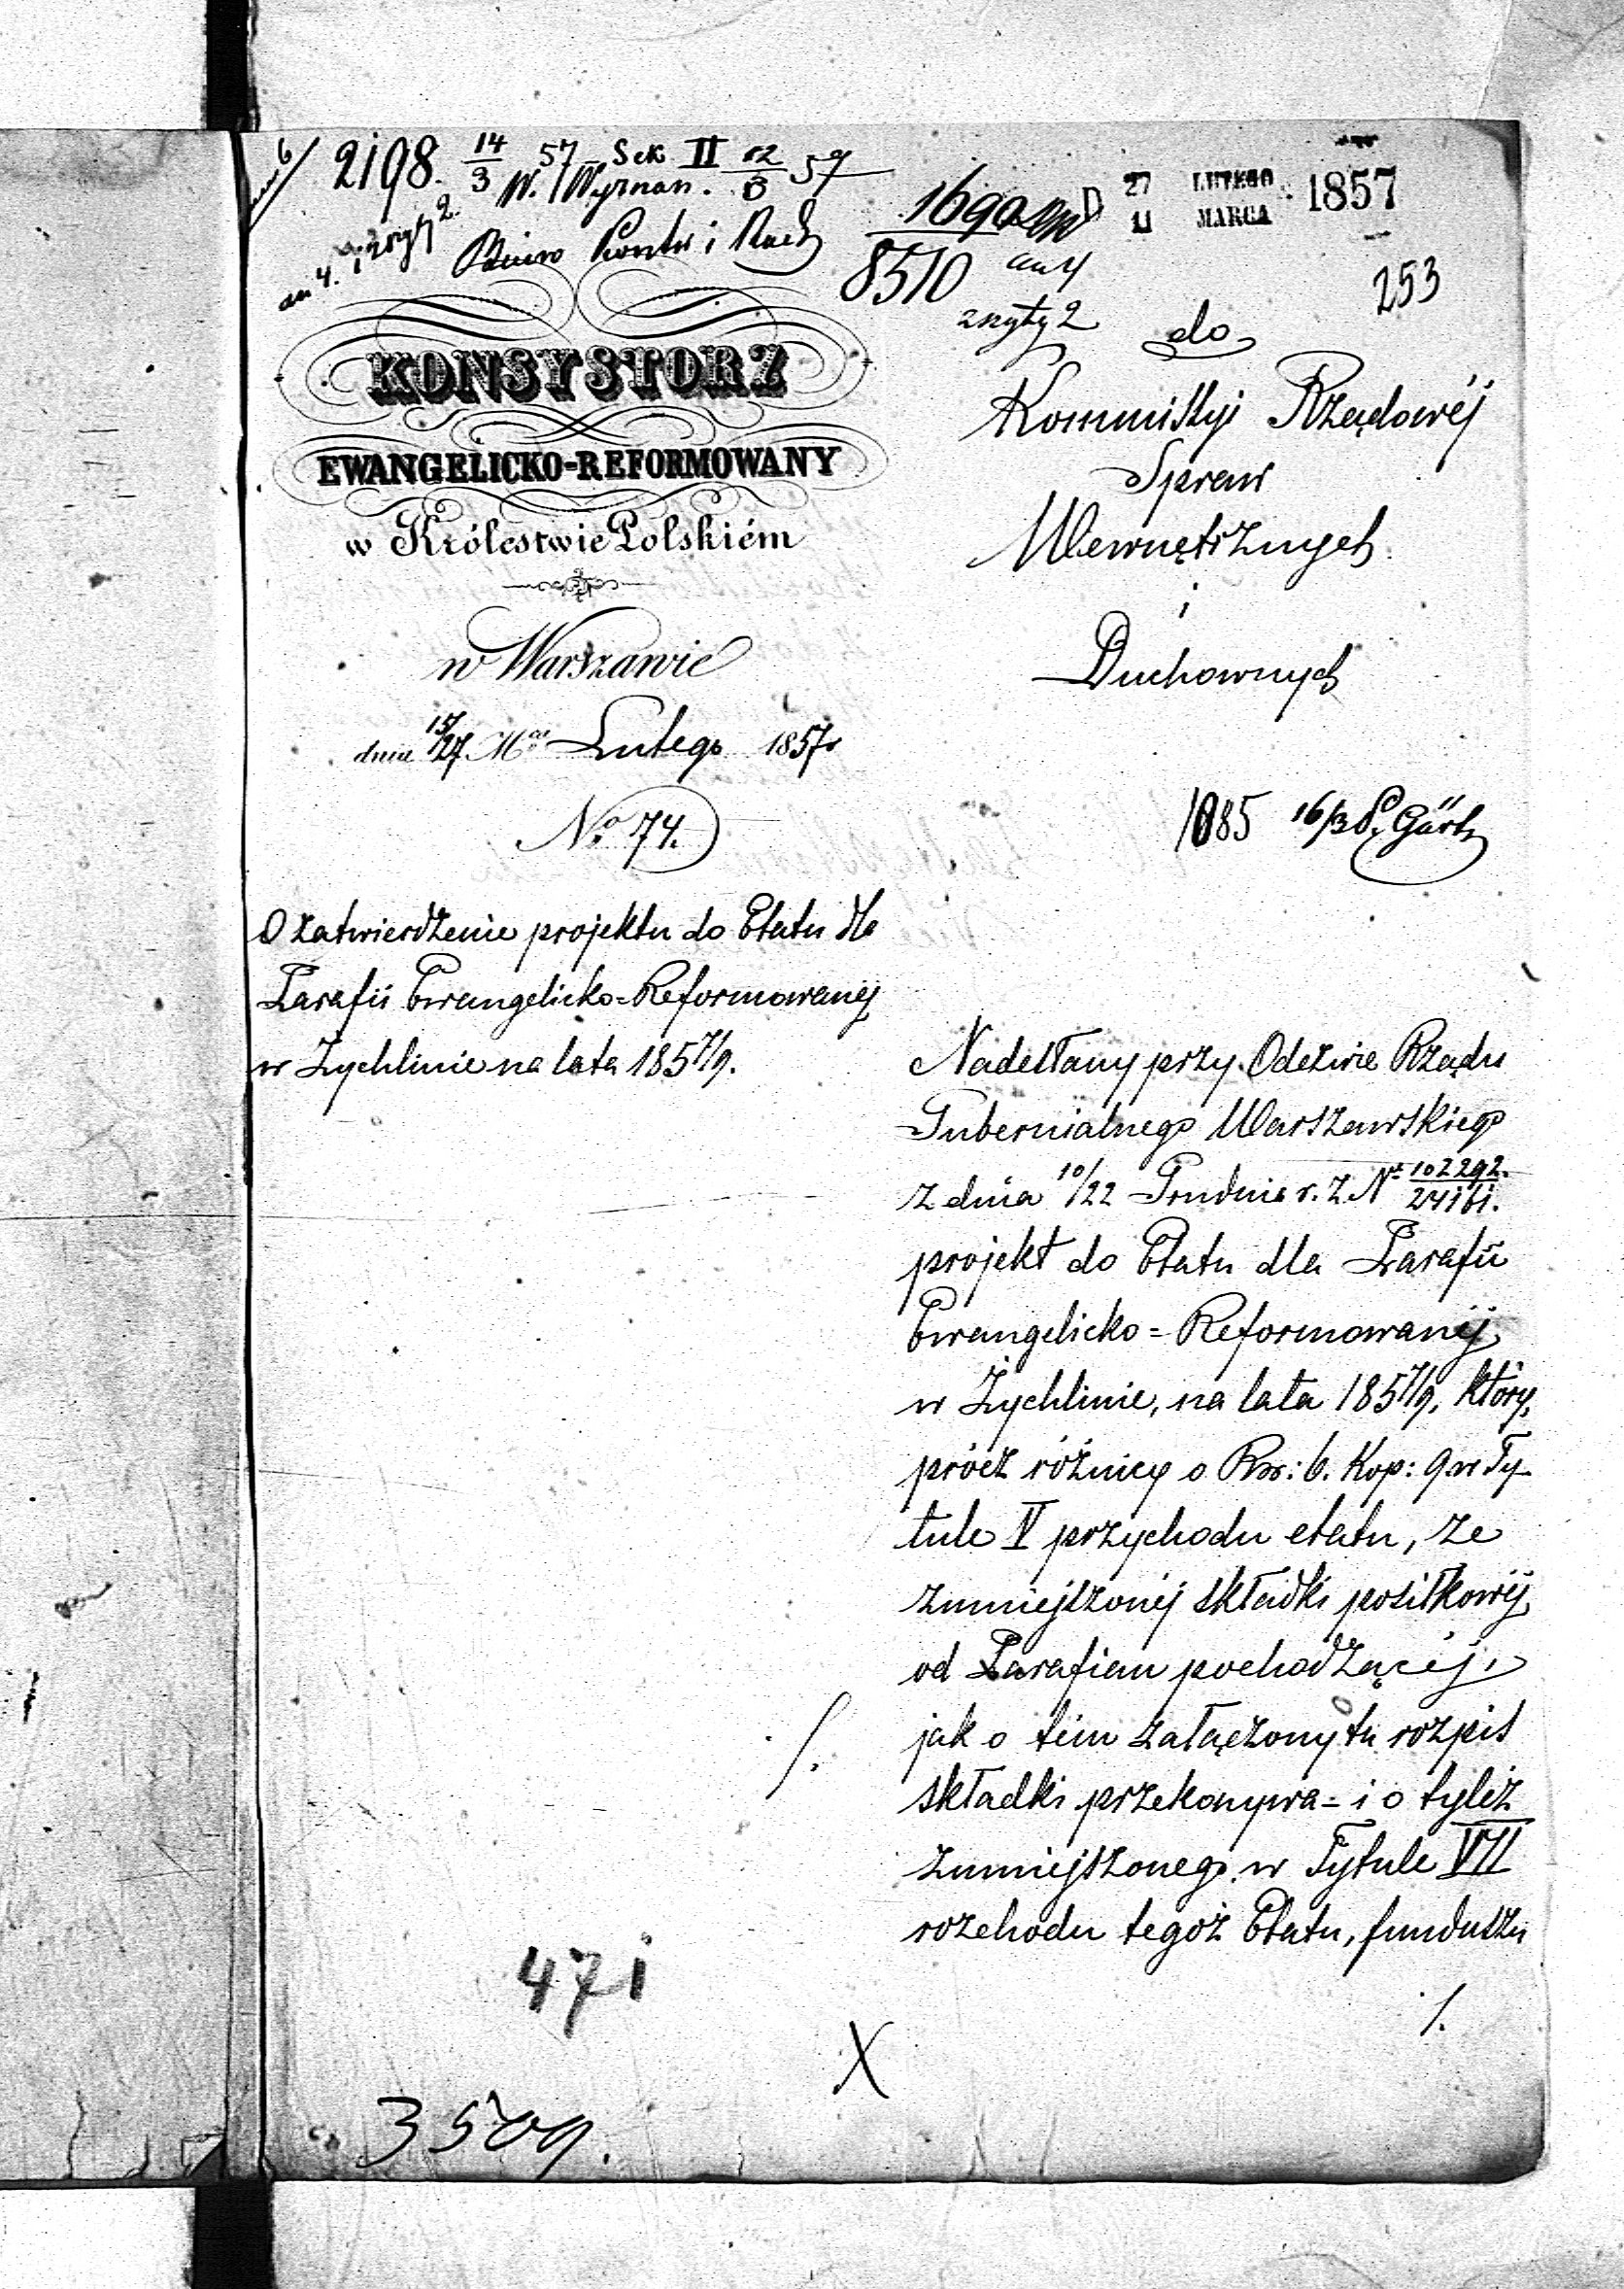 2198. 14/3 57 Sek II 12/3 57
W. Wyznan.
Biuro Kontr i Rach
an 4. zszyty 2.
1690
8510 an 4
zszyty 2
27 LUTEGO
11 MARCA 1857
253
KONSYSTORZ
EWANGELICKO-REFORMOWANY
w Królestwie Polskiém
w Warszawie
dnia 15/27 Mca Lutego 1857r
No 74.
O zatwierdzenie projektu do Etatu dla
Parafii Ewangelicko=Reformowanej
w Zychlinie na lata 1857/9.
do
Kommissyi Rządowéj
Spraw
Wewnętrznych
i
Duchownych
1085 16/3
Nadesłany przy Odezwie Rządu
Gubernialnego Warszawskiego
z dnia 10/22 Grudnia r. z. No 102292/24161.
projekt do Etatu dla Parafii
Ewangelicko=Reformowanéj
w Żychlinie, na lata 1857/9, który,
prócz różnicy o Rsr: 6. Kop: 9 w Ty-
tule V przychodu etatu, ze
zmniejszonéj składki posiłkowéj
od Parafian pochodzącéj,
jak o tém załączony tu rozpis
składki przekonywa= i o tyleż
zmniejszonego w Tytule VII
rozchodu tegoż Etatu, funduszu
/.
471
X
3509.